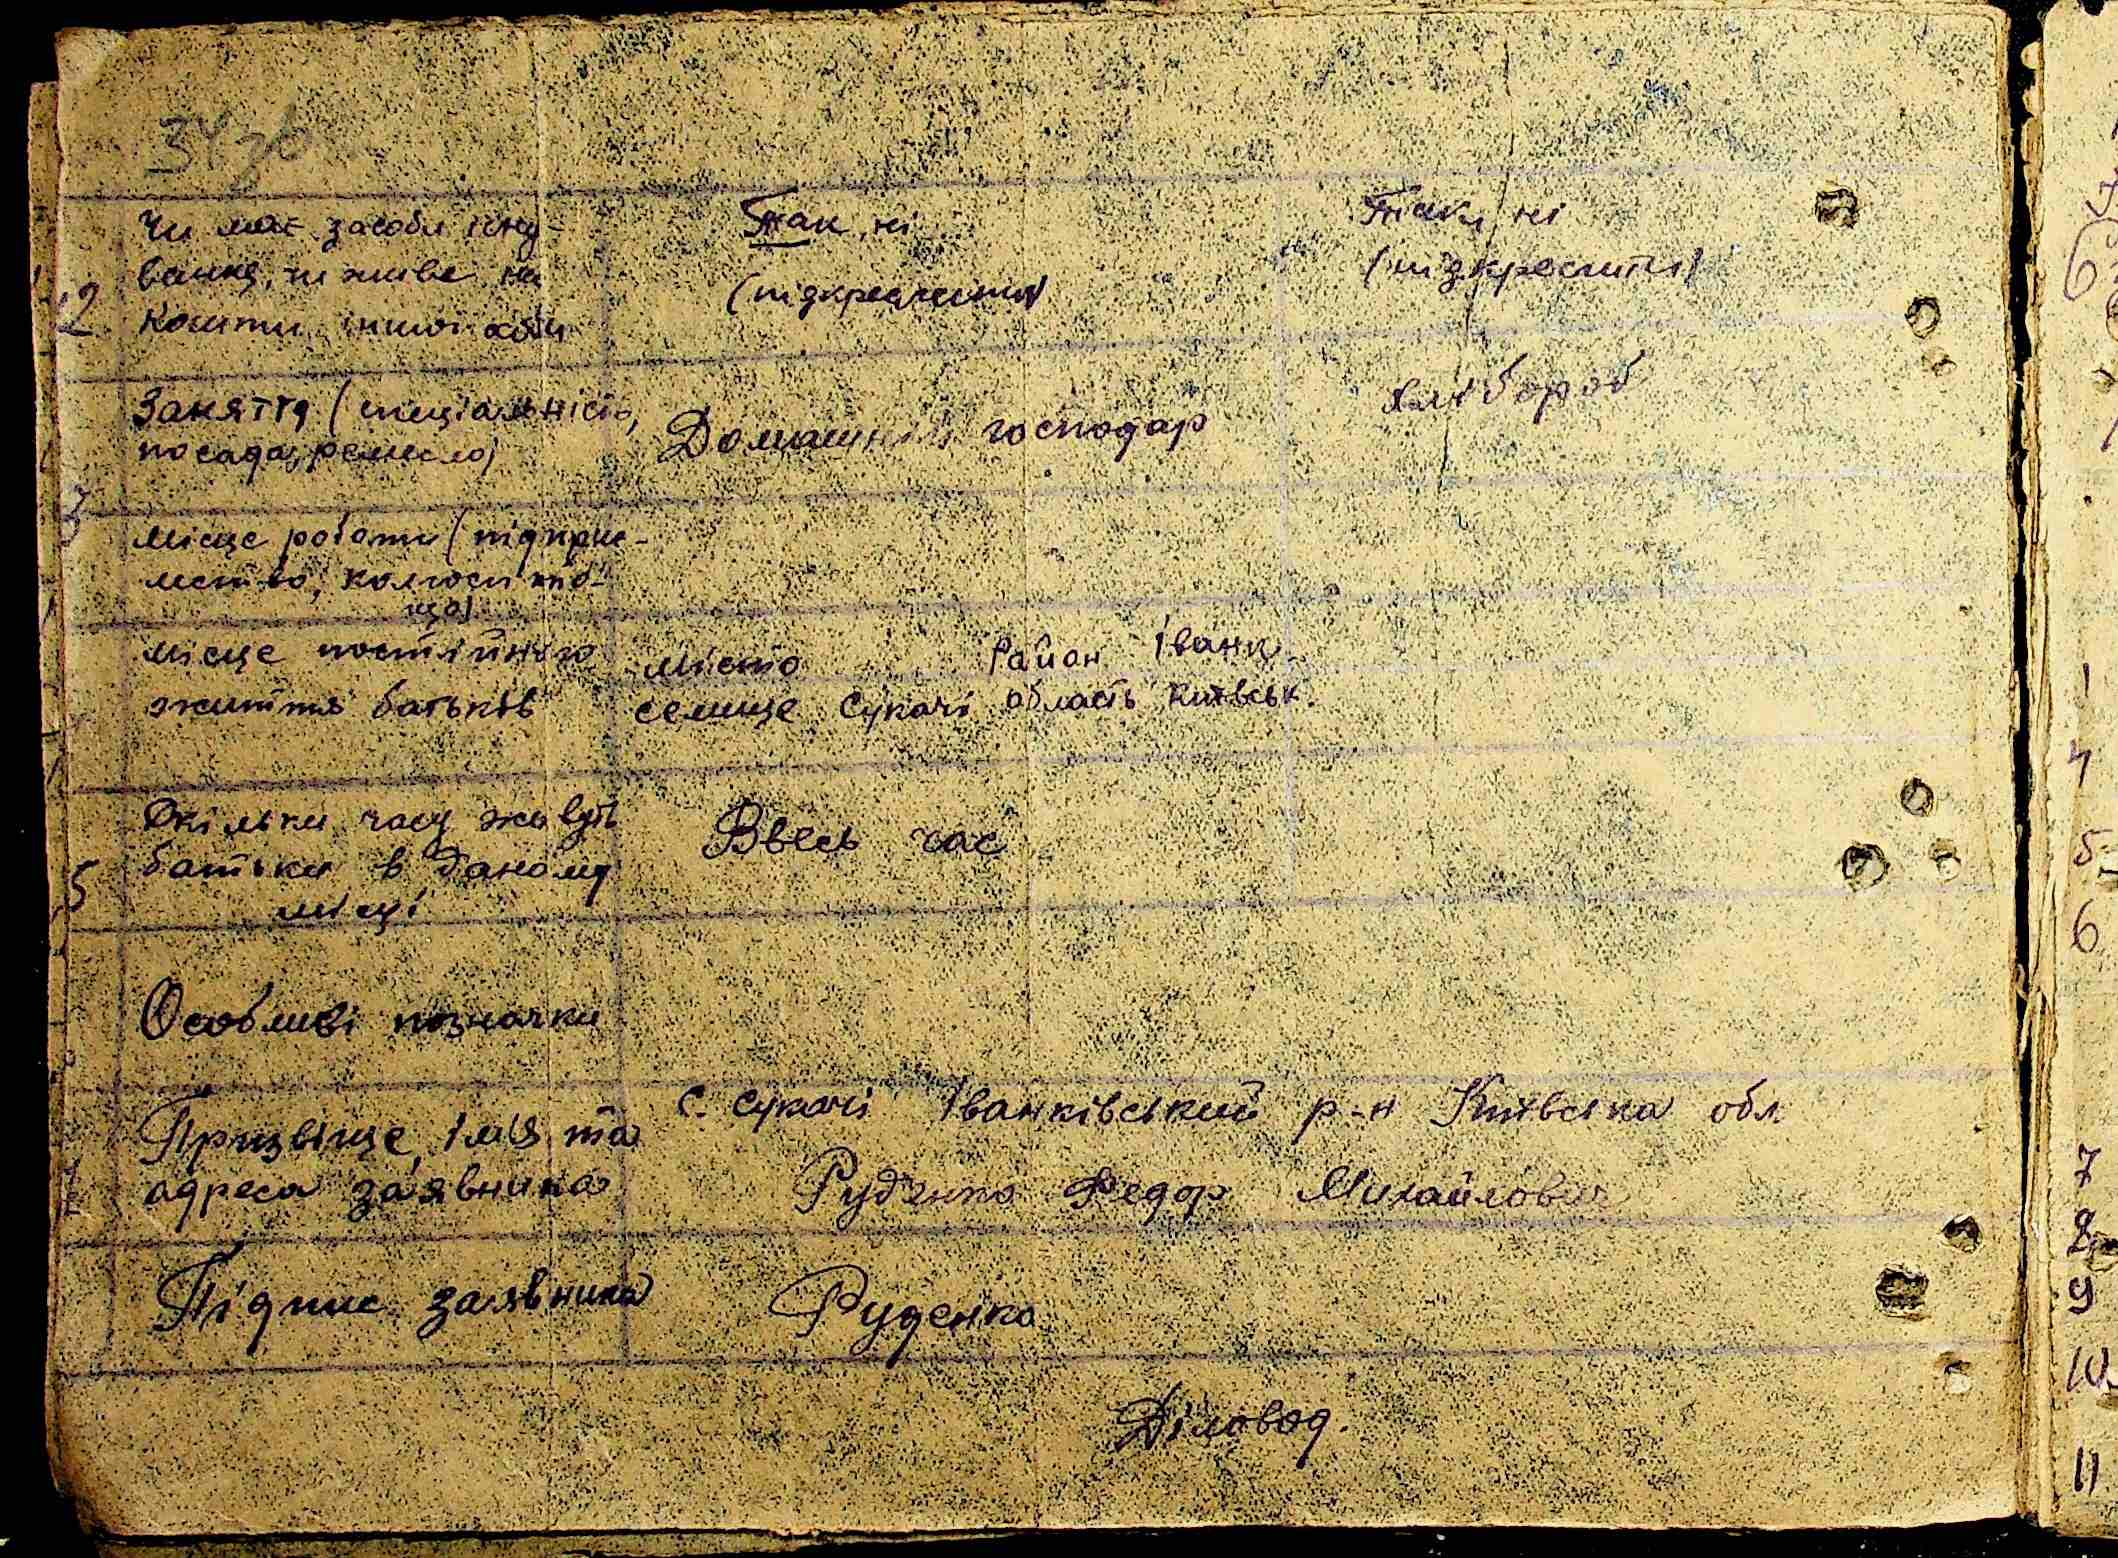 34зв
12 Чи має засоби існу-
вання, чи живе на
кошти іншої особи
Так, ні
(підкреслити)
Так, ні
(підкреслити)
Заняття (спеціальність,
посада, ремесло)
Домашній господар
хлібороб
3 Місце роботи (підприє-
мство, колгосп то-
що)
Місце постійного
життя батьків
місто район Іванк.
селище Сукачі область Київськ.
5 Скільки часу живуть
батьки в даному
місці
Ввесь час
Особливі позначки
Призвіще, імя та
адреса заявника
с. Сукачі Іванківський р-н Київська обл.
Руденко Федор Михайлович
Підпис заявника
Руденко
Діловод.
4
5
6
7
8
9
10
11